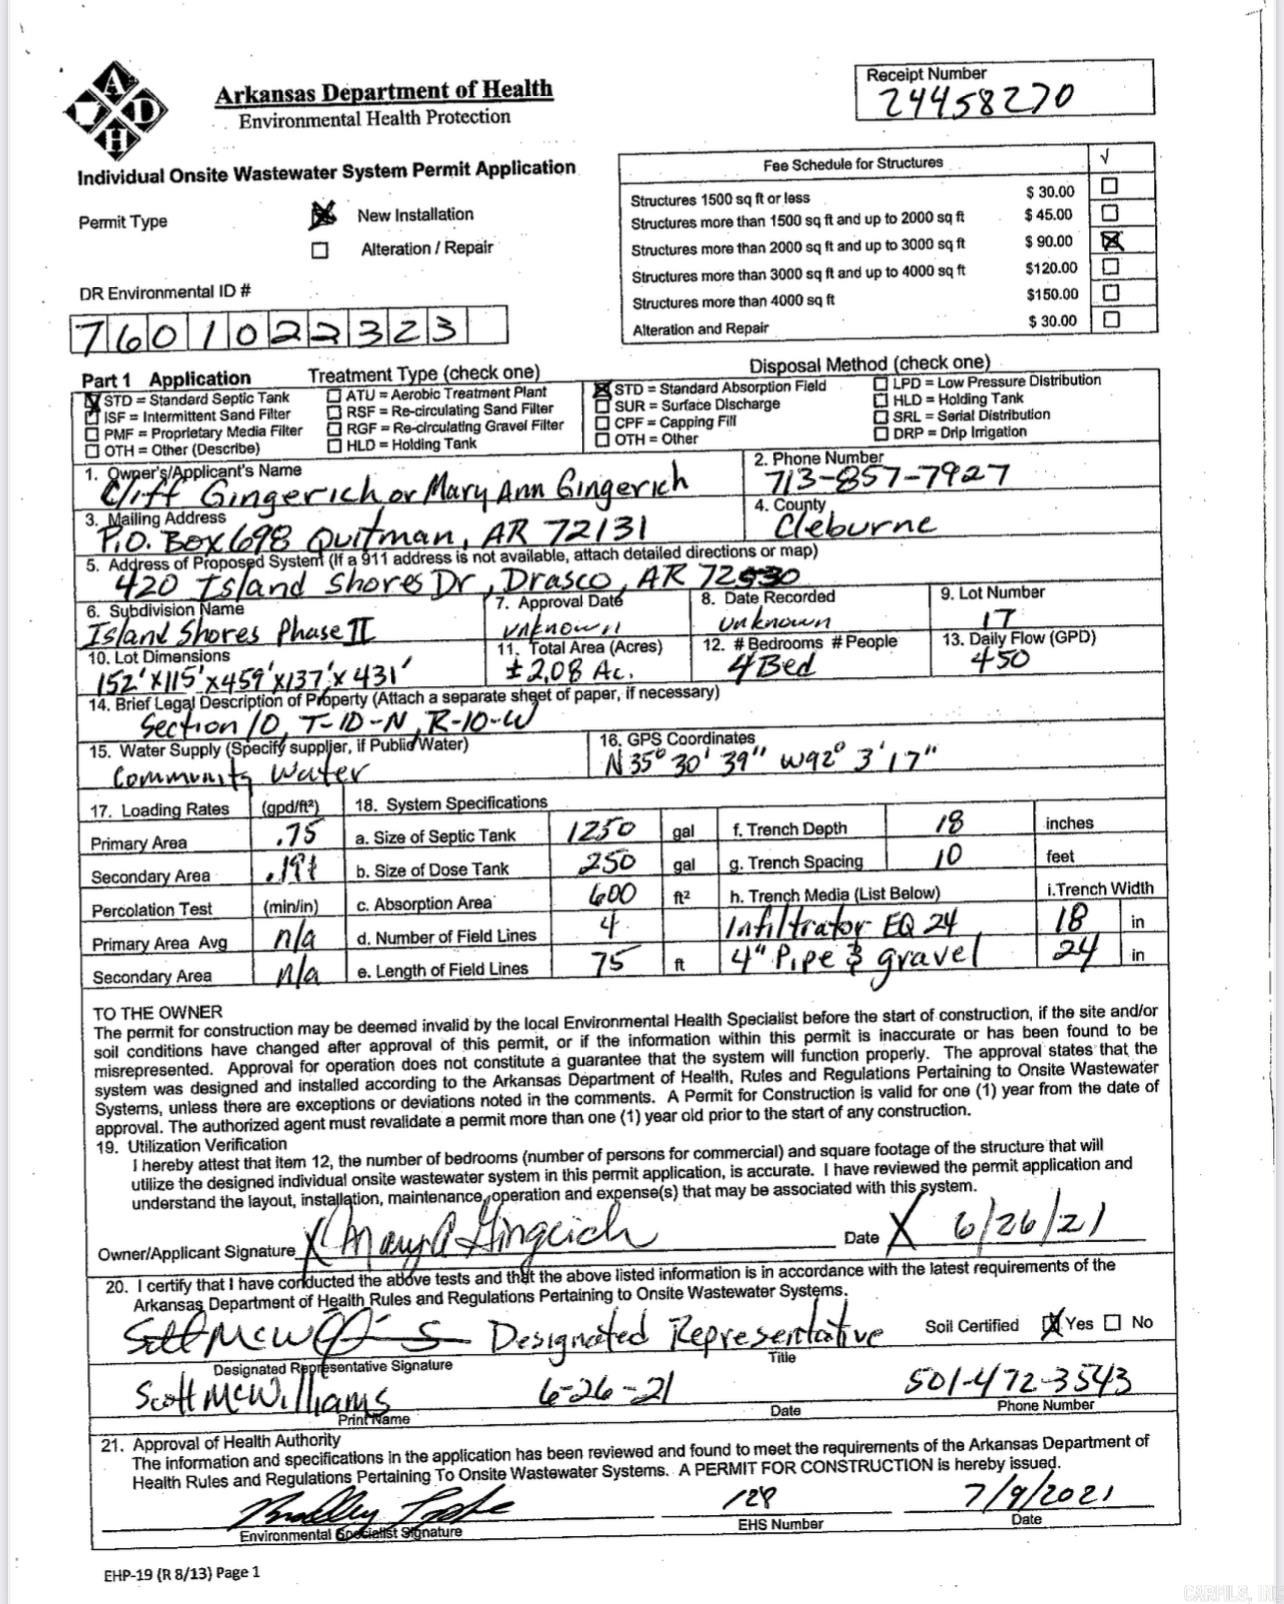 A
D
H
Arkansas Department of Health
Environmental Health Protection
Receipt Number
24458270
Individual Onsite Wastewater System Permit Application
Permit Type
New Installation
Alteration / Repair
Fee Schedule for Structures √
Structures 1500 sq ft or less $ 30.00
Structures more than 1500 sq ft and up to 2000 sq ft $ 45.00
Structures more than 2000 sq ft and up to 3000 sq ft $ 90.00
Structures more than 3000 sq ft and up to 4000 sq ft $120.00
Structures more than 4000 sq ft $150.00
Alteration and Repair $ 30.00
DR Environmental ID #
7601022323
Part 1 Application Treatment Type (check one) Disposal Method (check one)
STD = Standard Septic Tank ATU = Aerobic Treatment Plant STD = Standard Absorption Field LPD = Low Pressure Distribution
ISF = Intermittent Sand Filter RSF = Re-circulating Sand Filter SUR = Surface Discharge HLD = Holding Tank
PMF = Proprietary Media Filter RGF = Re-circulating Gravel Filter CPF = Capping Fill SRL = Serial Distribution
OTH = Other (Describe) HLD = Holding Tank OTH = Other DRP = Drip Irrigation
1. Owner's/Applicant's Name 2. Phone Number
Cliff Gingerich or Mary Ann Gingerich 713-857-7927
3. Mailing Address 4. County
P.O. Box 698 Quitman, AR 72131 Cleburne
5. Address of Proposed System (If a 911 address is not available, attach detailed directions or map)
420 Island Shores Dr, Drasco, AR 72530
6. Subdivision Name 7. Approval Date 8. Date Recorded 9. Lot Number
Island Shores Phase II unknown unknown 17
10. Lot Dimensions 11. Total Area (Acres) 12. # Bedrooms # People 13. Daily Flow (GPD)
152'x115'x459'x137'x431' ±2.08 Ac. 4 Bed 450
14. Brief Legal Description of Property (Attach a separate sheet of paper, if necessary)
Section 10, T-10-N, R-10-W
15. Water Supply (Specify supplier, if Public Water) 16. GPS Coordinates
Community Water N 35° 30' 39" W92° 3' 17"
17. Loading Rates (gpd/ft²) 18. System Specifications
Primary Area .75 a. Size of Septic Tank 1250 gal f. Trench Depth 18 inches
Secondary Area b. Size of Dose Tank 250 gal g. Trench Spacing 10 feet
Percolation Test (min/in) c. Absorption Area 600 ft² h. Trench Media (List Below) i.Trench Width
Primary Area Avg n/a d. Number of Field Lines 4 Infiltrator EQ 24 18 in
Secondary Area n/a e. Length of Field Lines 75 ft 4" Pipe & gravel 24 in
TO THE OWNER
The permit for construction may be deemed invalid by the local Environmental Health Specialist before the start of construction, if the site and/or
soil conditions have changed after approval of this permit, or if the information within this permit is inaccurate or has been found to be
misrepresented. Approval for operation does not constitute a guarantee that the system will function properly. The approval states that the
system was designed and installed according to the Arkansas Department of Health, Rules and Regulations Pertaining to Onsite Wastewater
Systems, unless there are exceptions or deviations noted in the comments. A Permit for Construction is valid for one (1) year from the date of
approval. The authorized agent must revalidate a permit more than one (1) year old prior to the start of any construction.
19. Utilization Verification
I hereby attest that item 12, the number of bedrooms (number of persons for commercial) and square footage of the structure that will
utilize the designed individual onsite wastewater system in this permit application, is accurate. I have reviewed the permit application and
understand the layout, installation, maintenance, operation and expense(s) that may be associated with this system.
Owner/Applicant Signature X Mary A Gingerich Date X 6/26/21
20. I certify that I have conducted the above tests and that the above listed information is in accordance with the latest requirements of the
Arkansas Department of Health Rules and Regulations Pertaining to Onsite Wastewater Systems.
Designated Representative Soil Certified Yes No
Designated Representative Signature Title
Scott McWilliams 6-26-21 501-472-3543
Print Name Date Phone Number
21. Approval of Health Authority
The information and specifications in the application has been reviewed and found to meet the requirements of the Arkansas Department of
Health Rules and Regulations Pertaining To Onsite Wastewater Systems. A PERMIT FOR CONSTRUCTION is hereby issued.
128 7/9/2021
Environmental Specialist Signature EHS Number Date
EHP-19 (R 8/13) Page 1